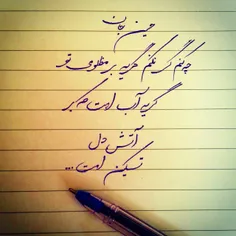 حسین جان
چه کنم گر نکنم گریه بر مظلومی تو
گریه آب است که بر
آتش دل
تسکین است...